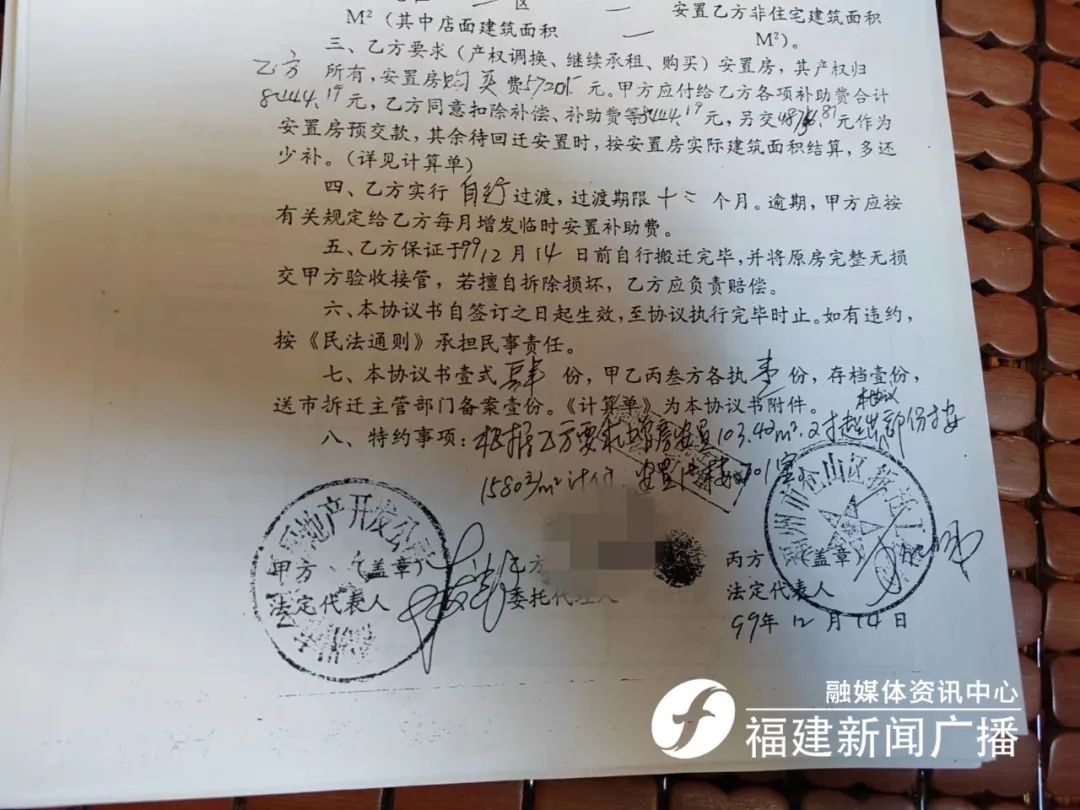 区
M²（其中店面建筑面积 — 安置乙方非住宅建筑面积
M²）。
三、乙方要求（产权调换、继续承租、购买）安置房，其产权归
乙方 所有，安置房购买费 元。甲方应付给乙方各项补助费合计
8444.19元，乙方同意扣除补偿、补助费等8444.19元，另交 元作为
安置房预交款，其余待回迁安置时，按安置房实际建筑面积结算，多还
少补。（详见计算单）
四、乙方实行 自行 过渡，过渡期限 十二 个月。逾期，甲方应按
有关规定给乙方每月增发临时安置补助费。
五、乙方保证于99 12月14日前自行搬迁完毕，并将原房完整无损
交甲方验收接管，若擅自拆除损坏，乙方应负责赔偿。
六、本协议书自签订之日起生效，至协议执行完毕时止。如有违约，
按《民法通则》承担民事责任。
七、本协议书壹式 肆 份，甲乙丙叁方各执 壹 份，存档壹份，
送市拆迁主管部门备案壹份。《计算单》为本协议书附件。
八、特约事项：根据乙方要求 103.42m². 超出部份按
1580元/m²计 安置 01室
房地产开发公司
甲方（盖章） 乙方 丙方（盖章）
法定代表人 委托代理人 法定代表人
福州市仓山区
99年12月14日
融媒体资讯中心
福建新闻广播